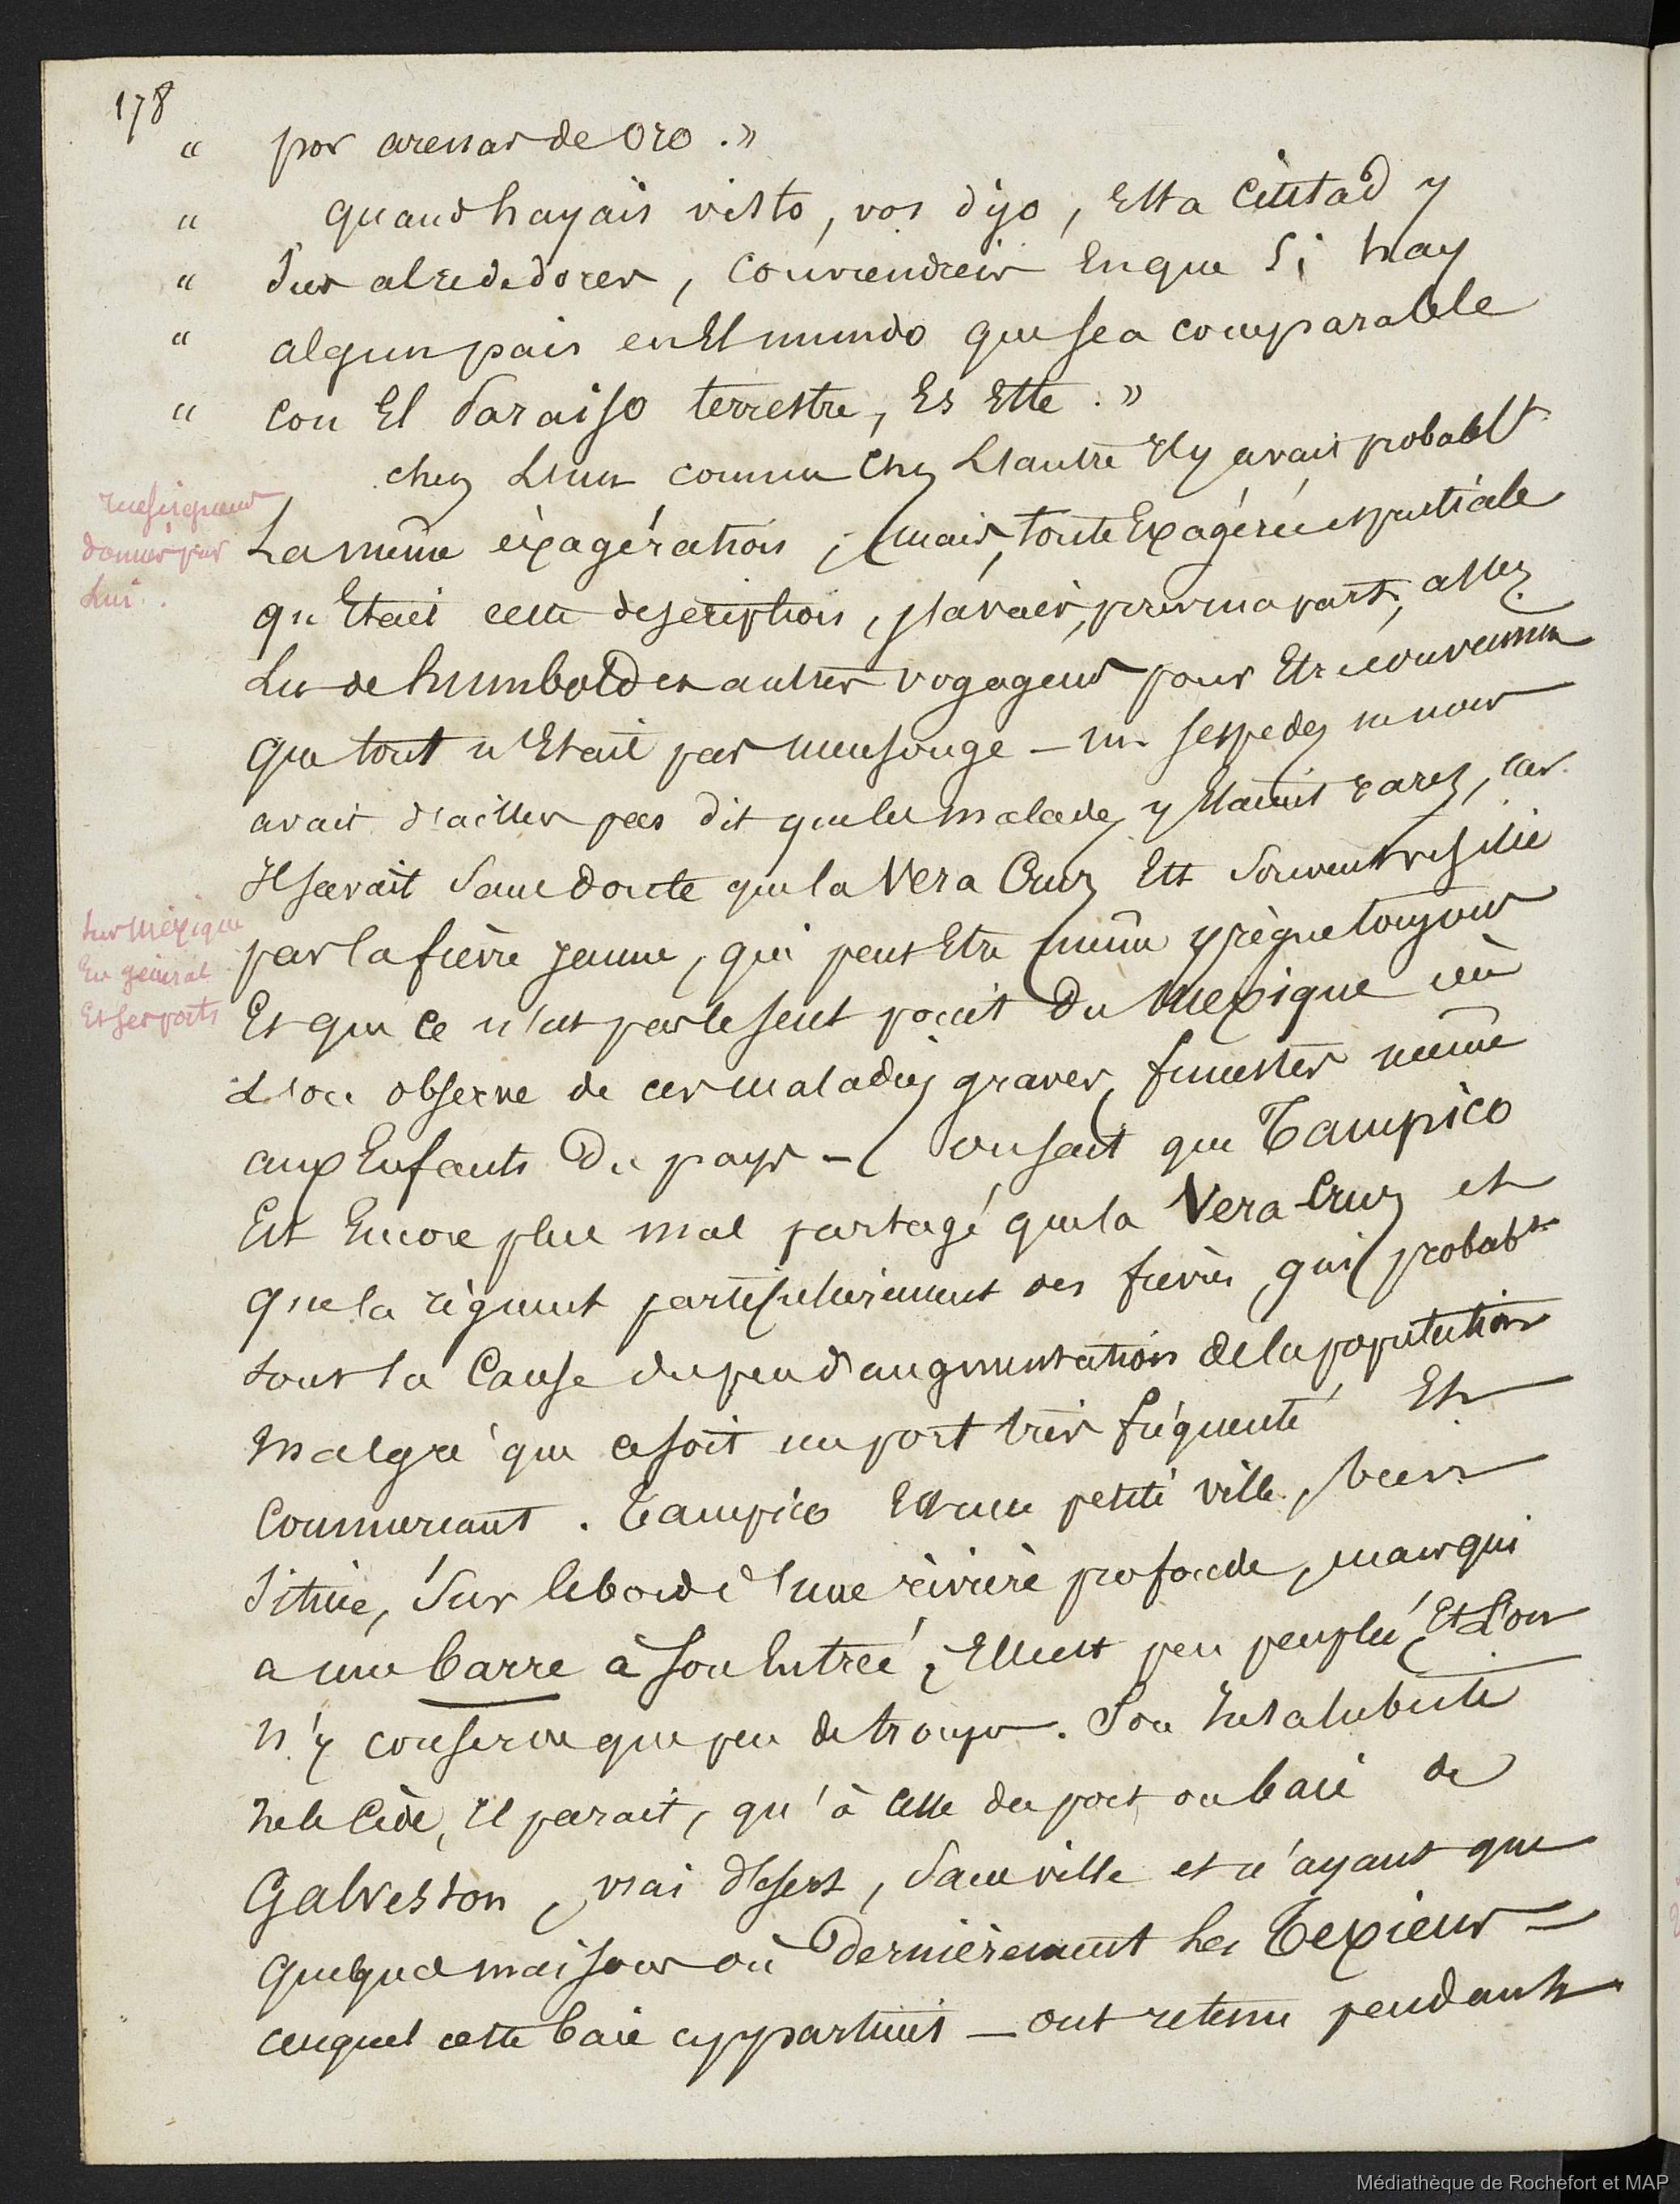 178
" por arenas de oro. »
" quand hayais visto, vos dijo, esta Ciutad y
" sus alrededores, convendreis en que si hay
" algun pais en El mundo que sea comparable
" con El Paraiso terrestre, Es Este. »
chez L'un comme chez L'autre Il y avait probablt
renseignemts
donnés par
Lui.
La même éxagération ; mais, toute Exagérée et partiale
qu'Etait cette description, j'avais, pour ma part, assez
Lu de humbold et autres voyageurs pour Etre convaincu
que tout n'Etait pas mensonge — Mr Sespedez ne nous
avait d'ailleurs pas dit que les maladies y Etaient rares, car
Il savait sans doute que la Vera Cruz Est souvent visitée
sur Méxique
En général
Et ses ports
par la fièvre jaune, qui peut Etre même y règne toujours
Et que ce n'est pas le seul point du Mexique où
L'on observe de ces maladies graves, funestes même
aux Enfants du pays — on sait que Tampico
Est Encore plus mal partagé que la Vera-Cruz et
que là règnent particulièrement des fièvres qui probabt
sont la Cause du peu d'augmentation de la population
malgré que ce soit un port très fréquenté Et
Commercant. Tampico Est une petite ville, bien
située, sur le bord d'une rivière profonde, mais qui
a une barre à son Entrée ; Elle est peu peuplée Et L'on
n'y conserve que peu de troupes. Son Insalubrité
ne le Cède, Il parait, qu'à celle du port ou baie de
Galveston, vrai désert, sans ville et n'ayant que
quelques maisons où Dernièrement Les Texiens —
auquel cette baie appartient — ont retenu pendant
Médiathèque de Rochefort et MAP